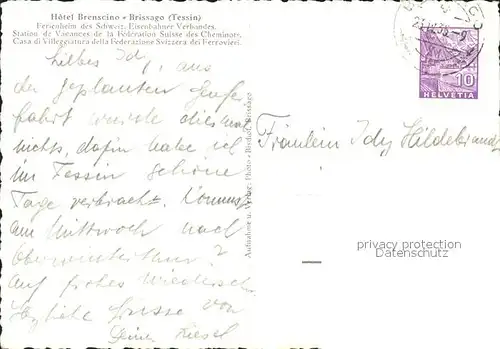 Hôtel Brenscino - Brissago (Tessin)
Ferienheim des Schweiz. Eisenbahner Verbandes.
Station de Vacances de la Fédération Suisse des Cheminots.
Casa di Villeggiatura della Federazione Svizzera dei Ferrovieri.
Liebes Idy, aus
der geplanten
fahrt wurde diesmal
nichts, dafür habe ich
im Tessin schöne
Tage verbracht. Kommst
am Mittwoch nach
Oberwinterthur?
Auf frohes Wiedersehn
herzliche Grüsse von
Deiner Liesel
Aufnahme u. Verlag: Photo-Bischof, Brissago
10
HELVETIA
Fräulein Idy Hildebrand
privacy protection
Datenschutz